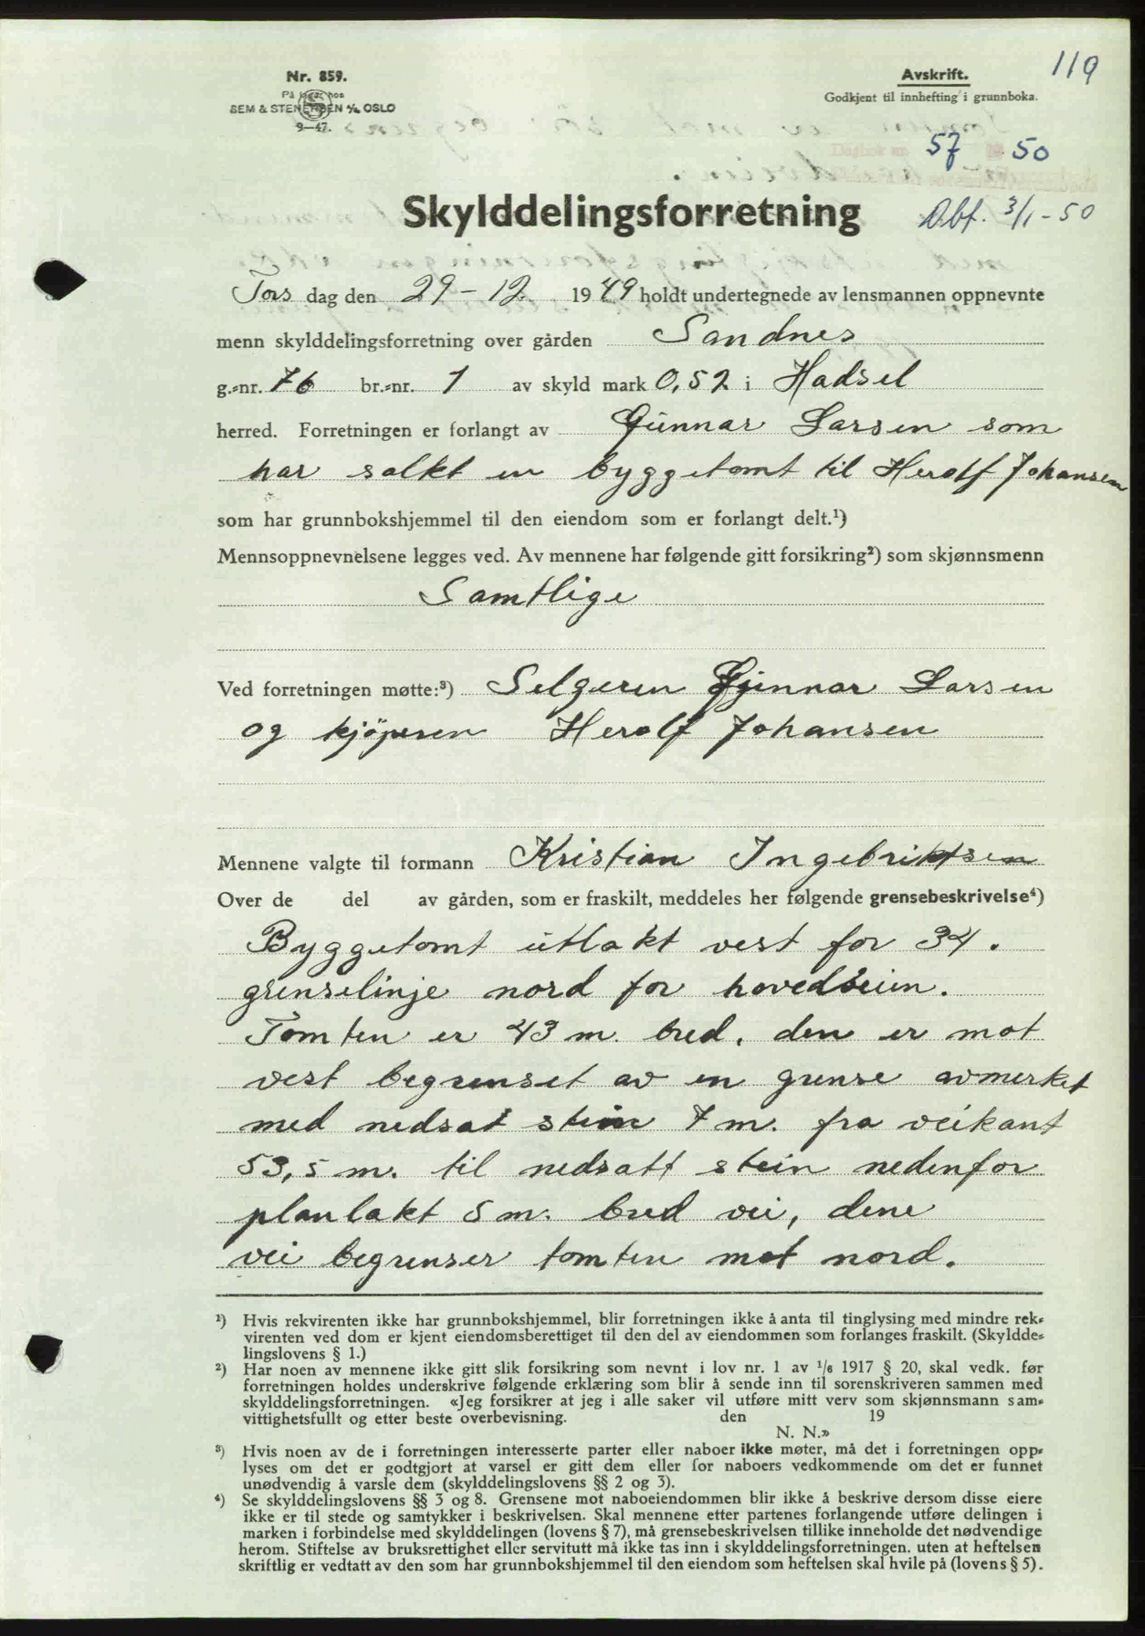 119
Nr. 859.
På lager hos
SEM & STENERSEN A/S OSLO
9—47.
Avskrift.
Godkjent til innhefting i grunnboka.
Dagbok nr. 57 50
Skylddelingsforretning Dbf. 3/1-50
Tors dag den 29-12 1949 holdt undertegnede av lensmannen oppnevnte
menn skylddelingsforretning over gården Sandnes
g.-nr. 76 br.-nr. 1 av skyld mark 0,52 i Hadsel
herred. Forretningen er forlangt av Gunnar Larsen som
har solkt en byggetomt til Herolf Johansen
som har grunnbokshjemmel til den eiendom som er forlangt delt.¹)
Mennsoppnevnelsene legges ved. Av mennene har følgende gitt forsikring²) som skjønnsmenn
Samtlige
Ved forretningen møtte:³) Selgeren Gunnar Larsen
og kjöperen Herolf Johansen
Mennene valgte til formann Kristian Ingebriktsen
Over de del av gården, som er fraskilt, meddeles her følgende grensebeskrivelse⁴)
Byggetomt utlakt vest for 34.
grenselinje nord for hovedveien.
Tomten er 43 m. bred. den er mot
vest begrenset av en grense avmerket
med nedsat stein 7 m. fra veikant
53,5 m. til nedsatt stein nedenfor
planlakt 5 m. bred vei, dene
vei begrenser tomten mot nord.
¹) Hvis rekvirenten ikke har grunnbokshjemmel, blir forretningen ikke å anta til tinglysing med mindre rek-
virenten ved dom er kjent eiendomsberettiget til den del av eiendommen som forlanges fraskilt. (Skyldde-
lingslovens § 1.)
²) Har noen av mennene ikke gitt slik forsikring som nevnt i lov nr. 1 av 1/6 1917 § 20, skal vedk. før
forretningen holdes underskrive følgende erklæring som blir å sende inn til sorenskriveren sammen med
skylddelingsforretningen. «Jeg forsikrer at jeg i alle saker vil utføre mitt verv som skjønnsmann sam-
vittighetsfullt og etter beste overbevisning. den 19
N. N.»
³) Hvis noen av de i forretningen interesserte parter eller naboer ikke møter, må det i forretningen opp-
lyses om det er godtgjort at varsel er gitt dem eller for naboers vedkommende om det er funnet
unødvendig å varsle dem (skylddelingslovens §§ 2 og 3).
⁴) Se skylddelingslovens §§ 3 og 8. Grensene mot naboeiendommen blir ikke å beskrive dersom disse eiere
ikke er til stede og samtykker i beskrivelsen. Skal mennene etter partenes forlangende utføre delingen i
marken i forbindelse med skylddelingen (lovens § 7), må grensebeskrivelsen tillike inneholde det nødvendige
herom. Stiftelse av bruksrettighet eller servitutt må ikke tas inn i skylddelingsforretningen. uten at heftelsen
skriftlig er vedtatt av den som har grunnbokshjemmel til den eiendom som heftelsen skal hvile på (lovens § 5).